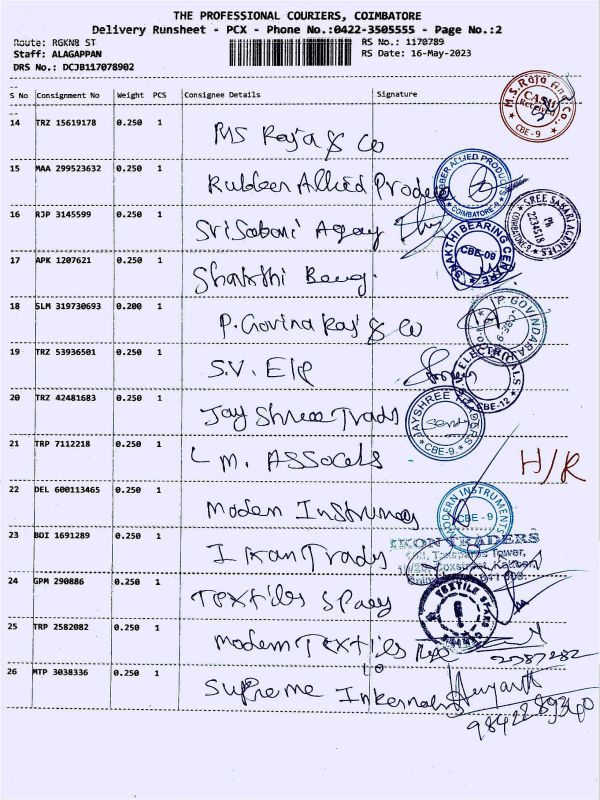 THE PROFESSIONAL COURIERS, COIMBATORE
Delivery Runsheet - PCX - Phone No.:0422-3505555 - Page No.:2
Route: RGKNB ST RS No.: 1170789
Staff: ALAGAPPAN RS Date: 16-May-2023
DRS No.: DCJB117078902
S No Consignment No Weight PCS Consignee Details Signature
M.S. Raja And Co. CASH Received CBE-9
14 TRZ 15619178 0.250 1 MS Raja & Co
15 MAA 299523632 0.250 1 Rubber Allied
RUBBER ALLIED PRODUCTS COIMBATORE-9
16 RJP 3145599 0.250 1 Sri Sabari Agay
SREE SABARI AGENCIES Ph 2234518 COIMBATORE-9
17 APK 1207621 0.250 1 Shakthi
SHAKTHI BEARING CENTRE CBE-09
18 SLM 319730693 0.200 1 P. Govind Raj & Co
P. GOVINDARA
19 TRZ 53936501 0.250 1 S.V. Ele
ELECTRICALS CBE-12
20 TRZ 42481683 0.250 1 Jay Shree Trads
JAYSHREE TRADERS CBE-9.
21 TRP 7112218 0.250 1 L M. Assocets
H/R
22 DEL 600113465 0.250 1 Modern Instrumens
MODERN INSTRUMENTS CBE - 9
23 BDI 1691289 0.250 1 Ikon Trads
IKON TRADERS
Tower,
24 GPM 290886 0.250 1 Textiles Spaey
TEXTILE SPARES
25 TRP 2582082 0.250 1 Modern Textiles
26 MTP 3038336 0.250 1 Supreme